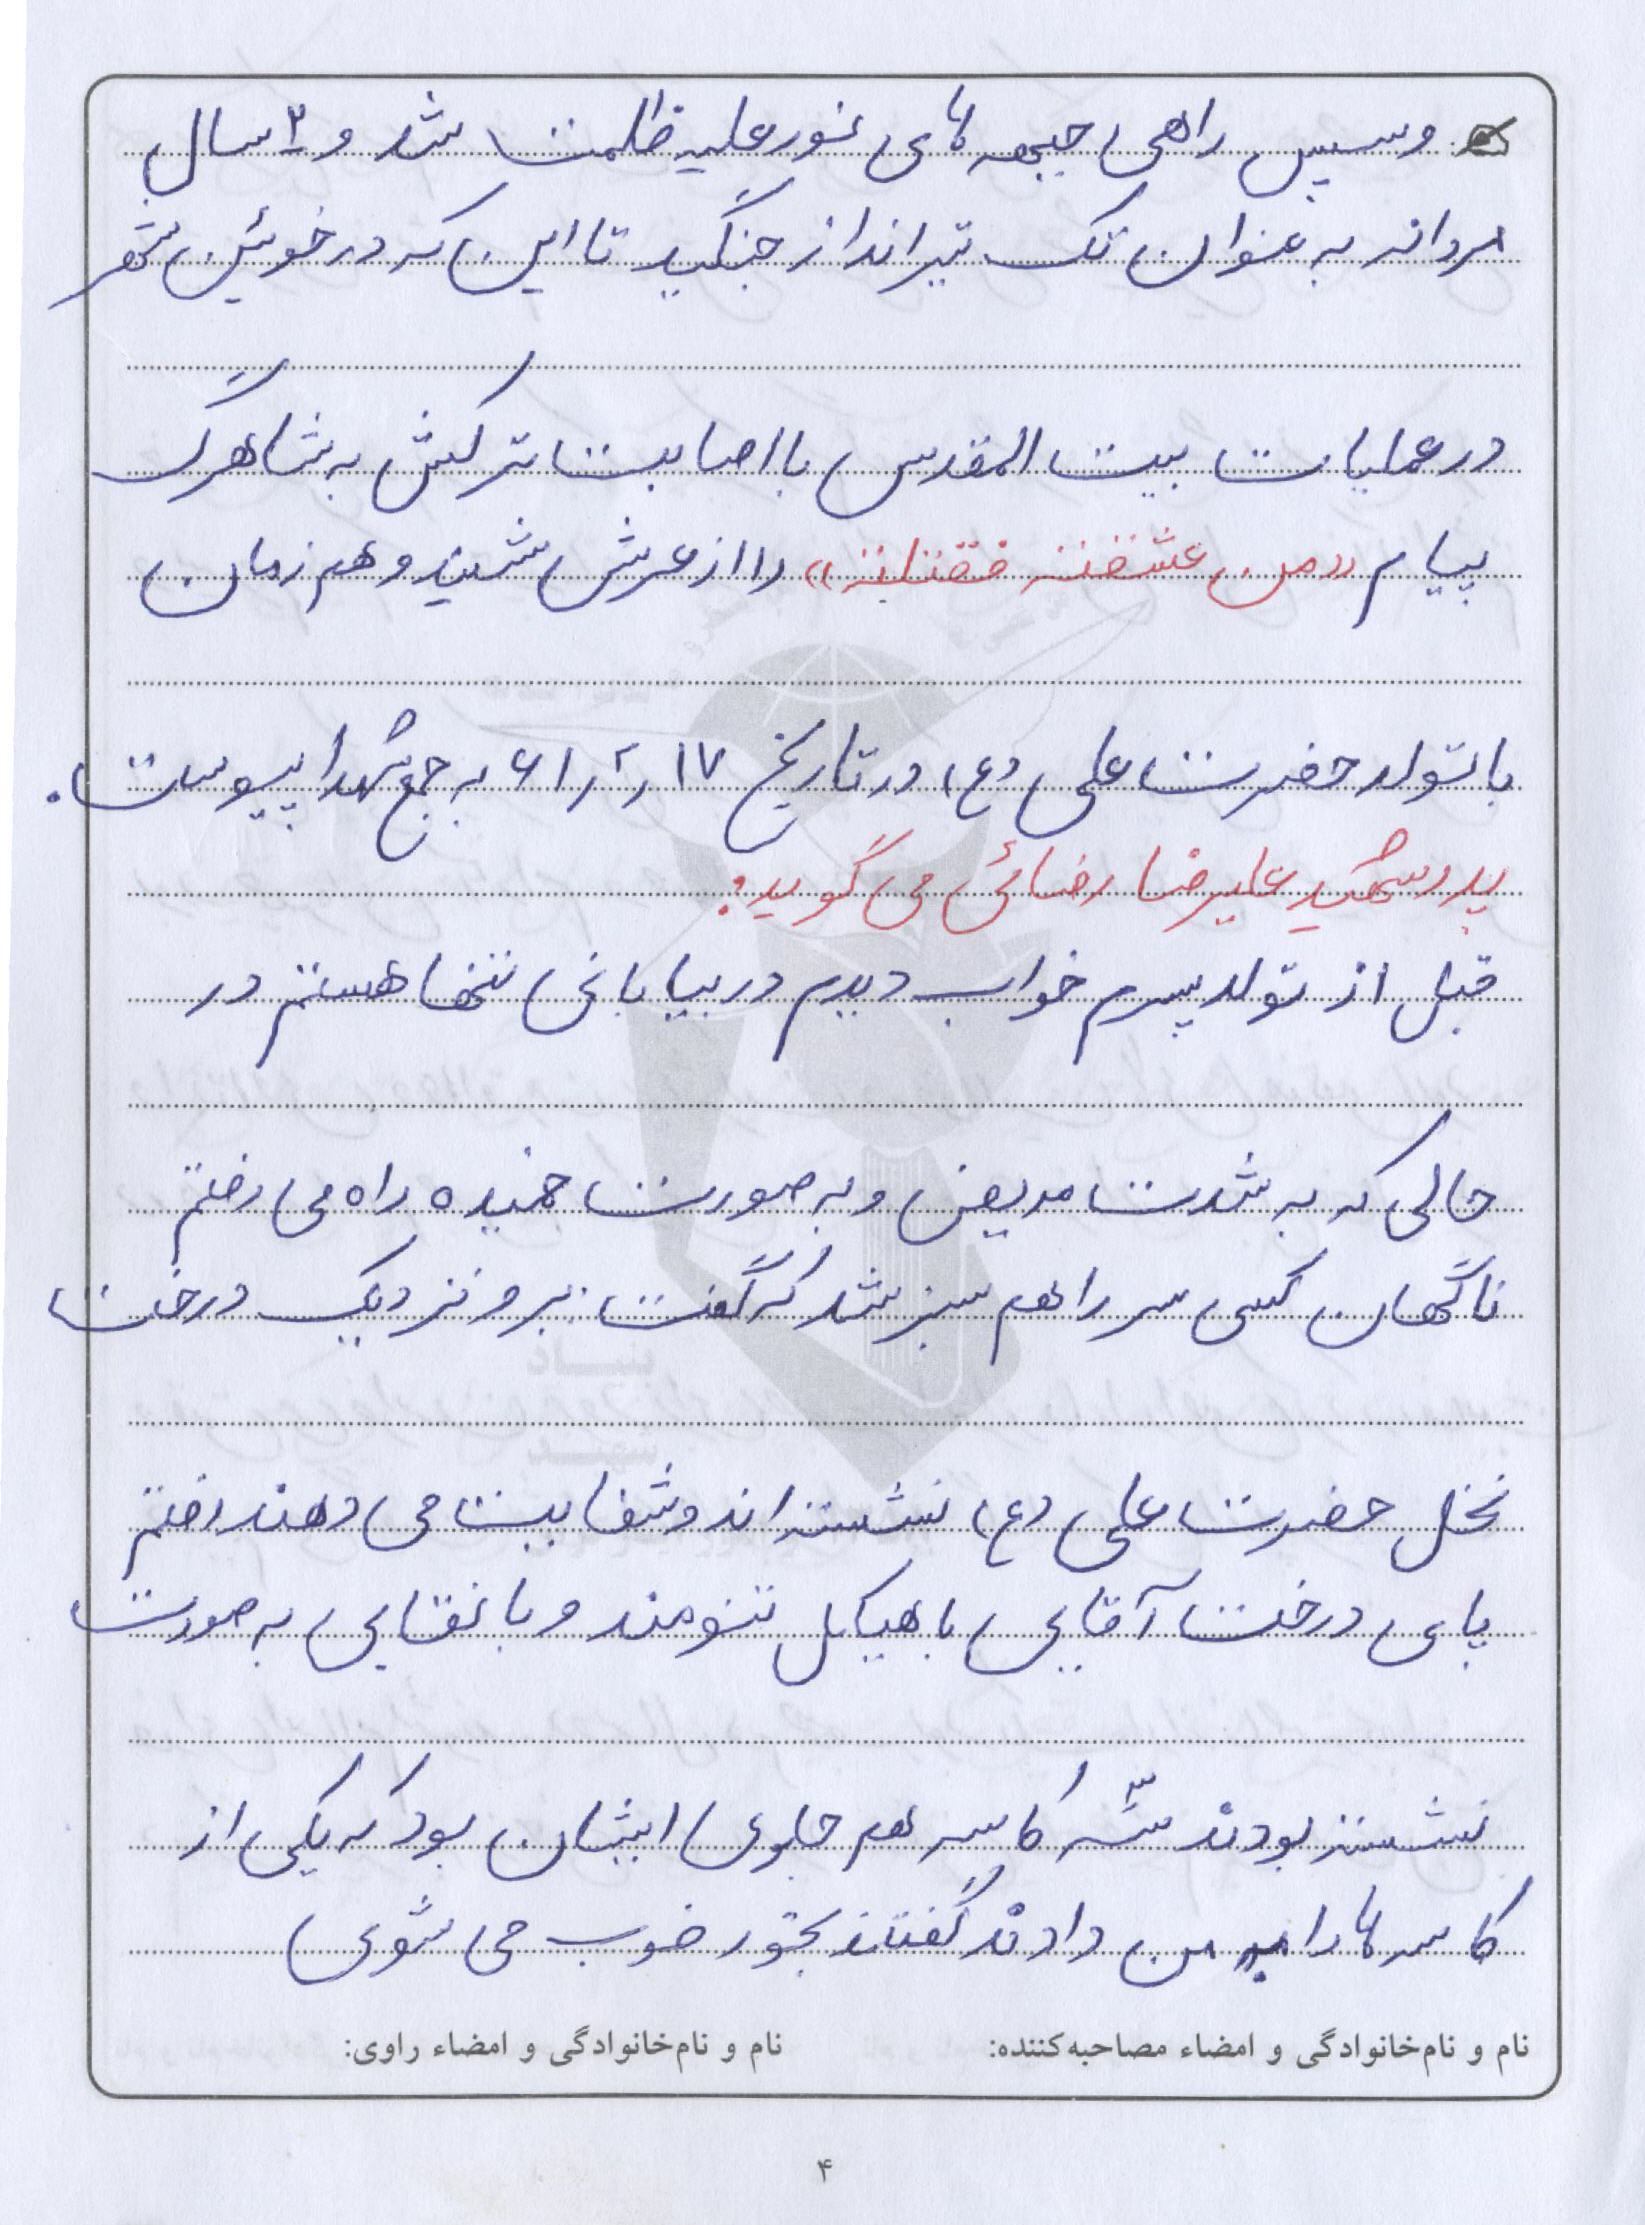 وسپس راهی جبهه های نور علیه ظلمت شد و ۳ سال
مردانه به عنوان تک تیرانداز جنگید تا این که در خونین شهر
در عملیات بیت المقدس با اصابت ترکش به شاهرگ
پیام «من عشقته فقتلته» را از عرش شنید و هم زمان
با تولد حضرت علی (ع) در تاریخ ۱۷ر۲ر۶۱ به جمع شهدا پیوست.
پدر شهید علیرضا رضائی می گوید:
قبل از تولد پسرم خواب دیدم در بیابانی تنها هستم در
حالی که به شدت مریض و به صورت خمیده راه می رفتم
ناگهان کسی سر راهم سبز شد که گفت: برو نزدیک درخت
نخل حضرت علی (ع) نشسته اند و شفا بهت می دهند رفتم
پای درخت آقایی با هیکل تنومند و با نقابی به صورت
نشسته بودند سه کاسه هم جلوی ایشان بود که یکی از
کاسه ها را به من دادند گفتند بخور خوب می شوی
نام و نام‌خانوادگی و امضاء مصاحبه‌کننده: نام و نام‌خانوادگی و امضاء راوی:
۴
بنیاد
شهید